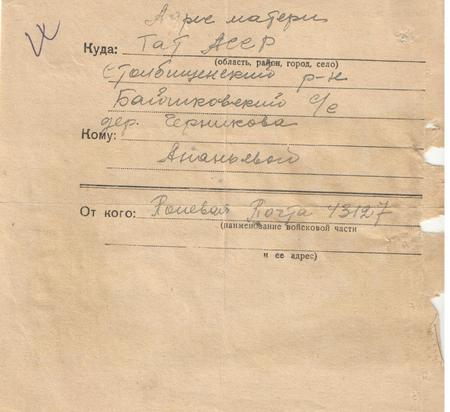 Адрес матери
Куда: Тат АССР
(область, район, город, село)
Столбищенский р-н
Байчиковский с/с
дер. Черникова
Кому:
Ананьевой
От кого: Полевая Почта 43127
(наименование войсковой части
и ее адрес)